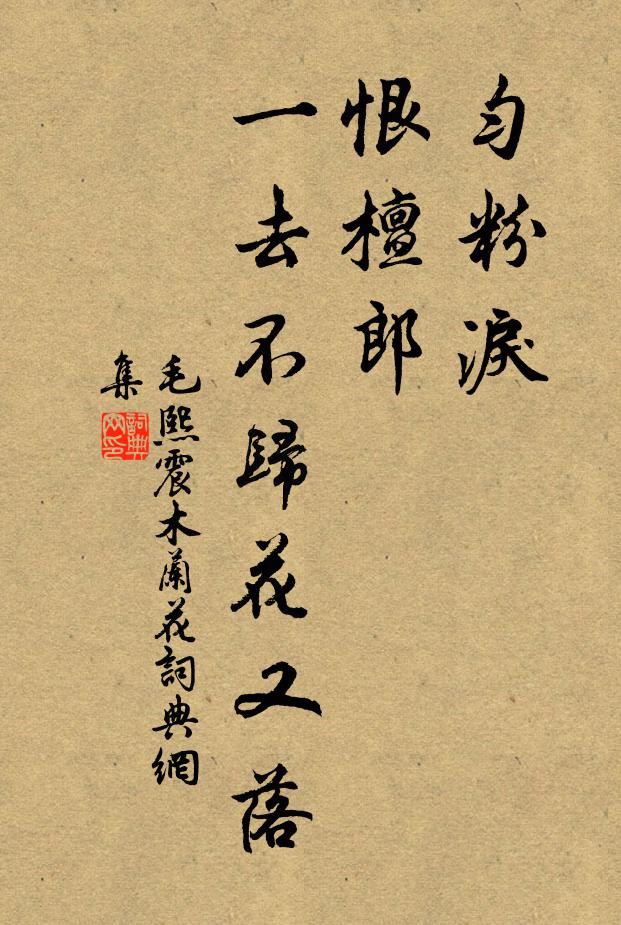 勻粉淚
恨檀郎
一去不歸花又落
毛熙震木蘭花詞典網
集
詞典
网印